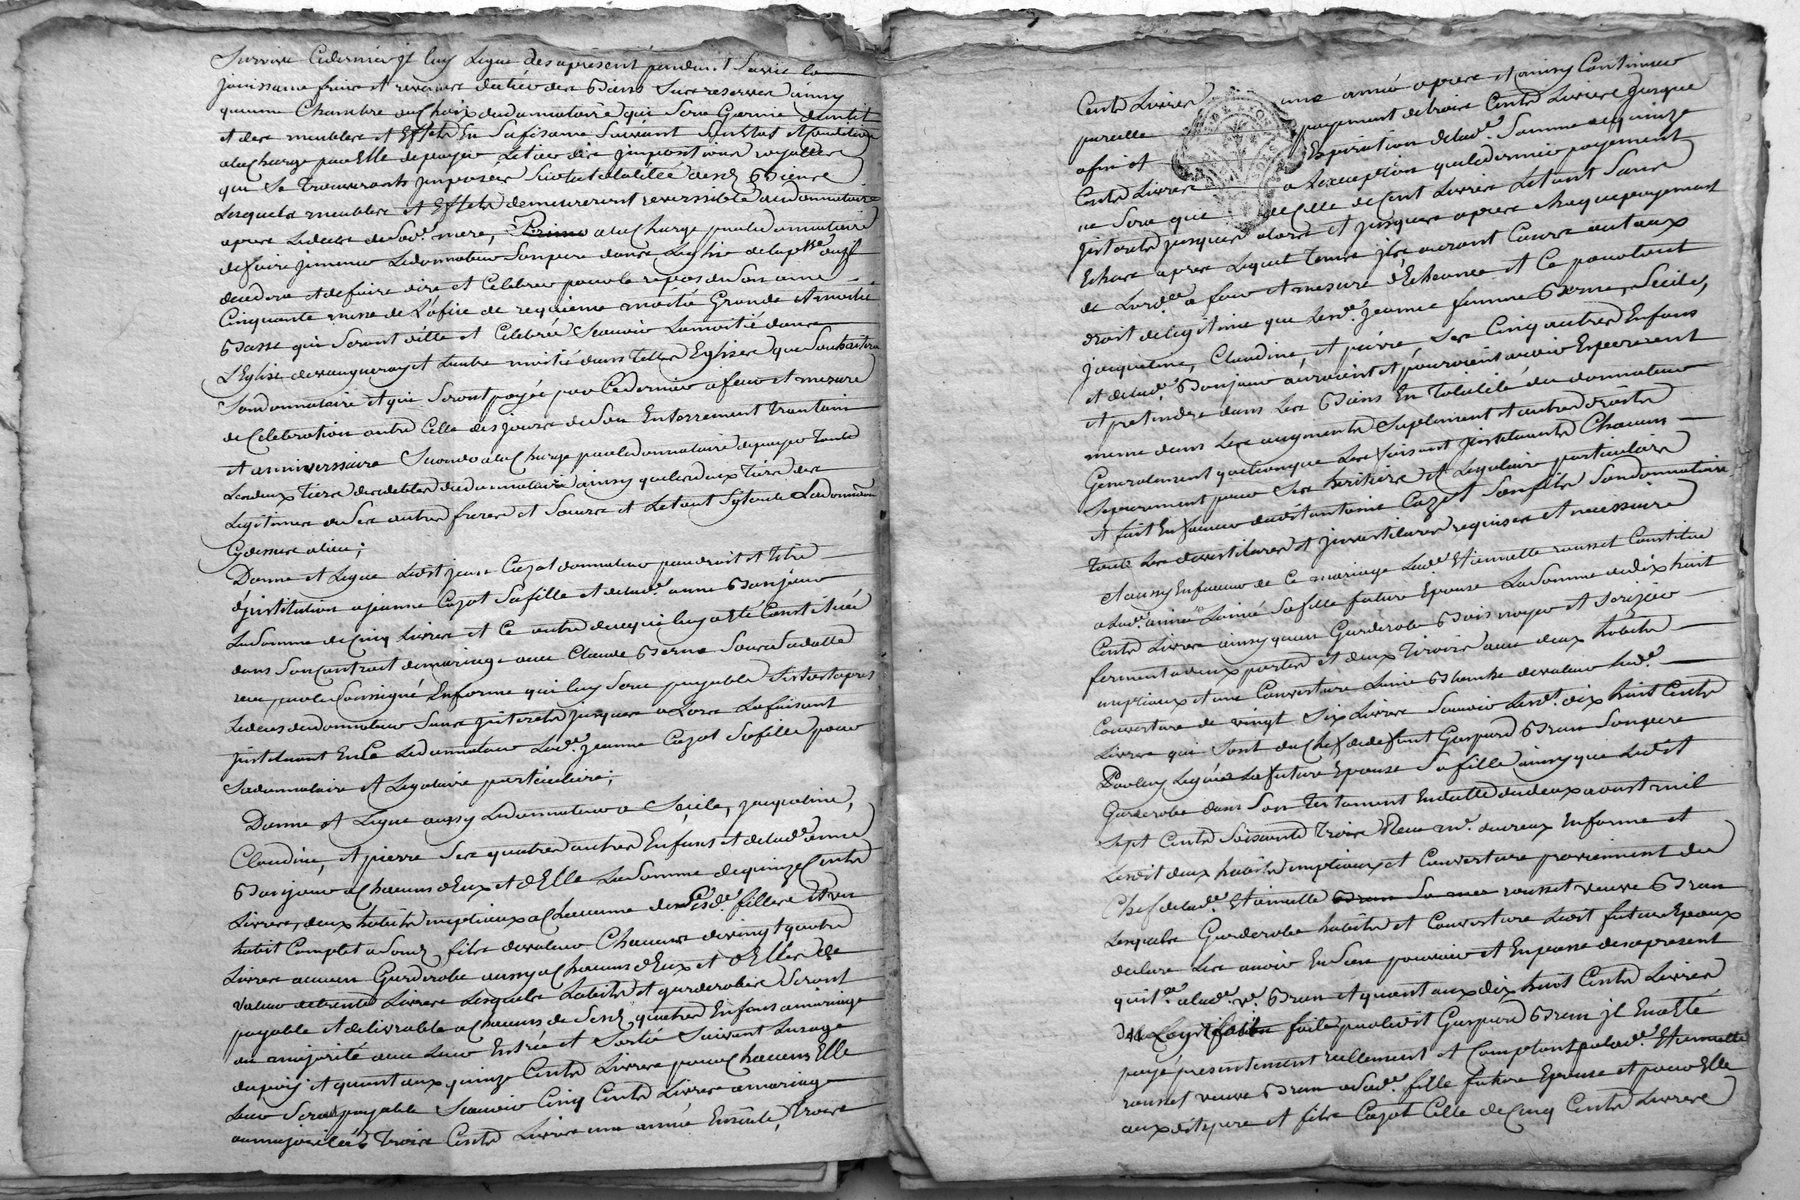 Survivre Cedernier Jl luy Legue des apresent pendant Sa vie la
jouissance fruits et revenus du tiers des Biens Susreservés ainsy
quune Chambre au Choix du donnataire qui Sera Garnie dunlit
et des meubles et Effets En Sufisance Suivant Son Etat et Condition
ala Charge par Elle depayer Letiers des Impositions royalles
qui Se trouveront Imposées Surlatotalité desd. Biens
Lesquels meubles et Effets demeureront reversibles audonnataire
apres Ledeces de Sad.e mere, Primo ala Charge parledonnataire
defaire Inhumer Ledonnateur Sonpere dans Leglise delap.sse
decedera et defaire dire et Celebrer pourle repos deSon ame
Cinquante messe de L'ofice de requiem moitié Grande et moitié
Basse qui Seront ditte et Celebrée Scavoir Lamoitié dans
L'Eglise devaugneray et Lautre moitié dans telles Eglises que Souhaitera
Sondonnataire et qui Seront payée par Cedernier a fur et mesure
de Celebration outre Celle des jours de Son Enterrement trantain
et anniversaire Secondo ala Charge parledonnataire depayer toutes
Lesdeux tiers desdebtes dudonnataire ainsy quelesdeux tiers des
Legitimes de Ses autres freres et Sœurs et Letout Sytante Ladonnaon
Cydessus alieu;
Donne et Legue Ledit Jean Cazot donnateur par droit et titre
d'Institution a Jeanne Cazot Safille et delad.e anne Bonjour
La Somme de Cinq Livres et Ce outre Cequi luy a été Constitué
dans Son Contrat demariage avec Claude Berne Sous Sadatte
recu parle Soussigné Enforme qui luy Sera payable Sitost apres
Ledeces dudonnateur Sans Interets Jusques a Lors Lafaisant
Instituant En Ce Ledonnateur Lad.e Jeanne Cazot Safille pour
Sadonnataire et Legataire particuliere;
Donne et Legue aussy Ledonnateur a Sécile, Jacqueline,
Claudine, et pierre Ses quatres autres Enfans et delad.e anne
Bonjour a Chacuns d'Eux et d'Elle La Somme dequinze Cents
Livres, deux habits nuptiaux a Chacunne des Lesd.e filles et un
habit Complet a Sond. fils devaleur Chacuns devingt quatre
Livres avecun Garderobe aussy a Chacuns d'Eux et d'Elles de
valeur detrente Livres Lesquels habits et garderobes Seront
payable et delivrable a Chacuns de Sesd. quatres Enfans amariage
ou majorité avec Leur Entrée et Sortie Suivant Lusage
dupaiy et quant aux quinze Cents Livres pour Chacuns Elle
Leur Sera payable Scavoir Cinq Cents Livres amariage
oumajorité, trois Cents Livres une année Ensuite, trois
Cents Livres une année apres et ainsy Continuer
pareille payement detrois Cents Livres Jusque
afin et Expiration delad.e Somme dequinze
Cents Livres a Lexception quele dernier payement
ne Sera que de Celle de Cent Livres Letout Sans
Interets jusques alors et jusques apres Chaque payement
Echus apres Lequel temps Jls auront Cours au taux
de Lord.ce a fur et mesure d'Echeance et Ce pourtout
droit delegitime que Lesd. Jeanne femme Berne, Sécile,
Jacqueline, Claudine, et pierre, Ses Cinq autres Enfans
et delad.e Bonjour auroient et pourroient avoir Esperer
et pretendre dans Les Biens En totalité du donnateur
meme dans Les augments Suplement et autres droits
Generalement quelconque Les faisant Instituant Chacun
Separement pour Ses heritiers et Legataire particuliers
et fait En faveur dudit antoine Cazot Sonfils Sondonnataire
toute Les devestitures et Investitures requises et necessaire
et aussy Enfaveur de Ce mariage Lad.e Etiennette rousset Constitue
alad.e aimée Lainé Safille future Epouse La Somme dedix huit
Cents Livres ainsy quun Garderobe Bois noyer et Serizier
fermant adeux portes et deux tiroirs avec deux habits
nuptiaux et une Couverture Laine Blanche devaleur lad.e
Couverture de vingt Six Livres Scavoir Lesd.t dix huit Cents
Livres qui Sont du Chef dedefunt Gaspard Brun Sonpere
Parluy Leguées La future Epouse Safille ainsy que Ledit
Garderobe dans Son testament Endatte dudeux aoust mil
Sept Cents Soixante trois Recu m.e ducreux Enforme et
Lesdit deux habits nuptiaux et Couverture proviennent du
Chef delad.e Etiennette Brun Sa mere rousset veuve Brun
Lesquels Garderobe habits et Couverture Ledit futur Epoux
declare Les avoir En Sien pouvoir et Enpasse desapresent
quit.ce alad.e v.e Brun et quant aux dix huit Cents Livres
du Legt faite parledit Gaspard Brun Jl En a été
payé presentement reellement et Comptant par lad.e Etiennette
rousset veuve Brun a Sad.e fille future Epouse et pour Elle
aux dits pere et fils Cazot Celle de Cinq Cents Livres